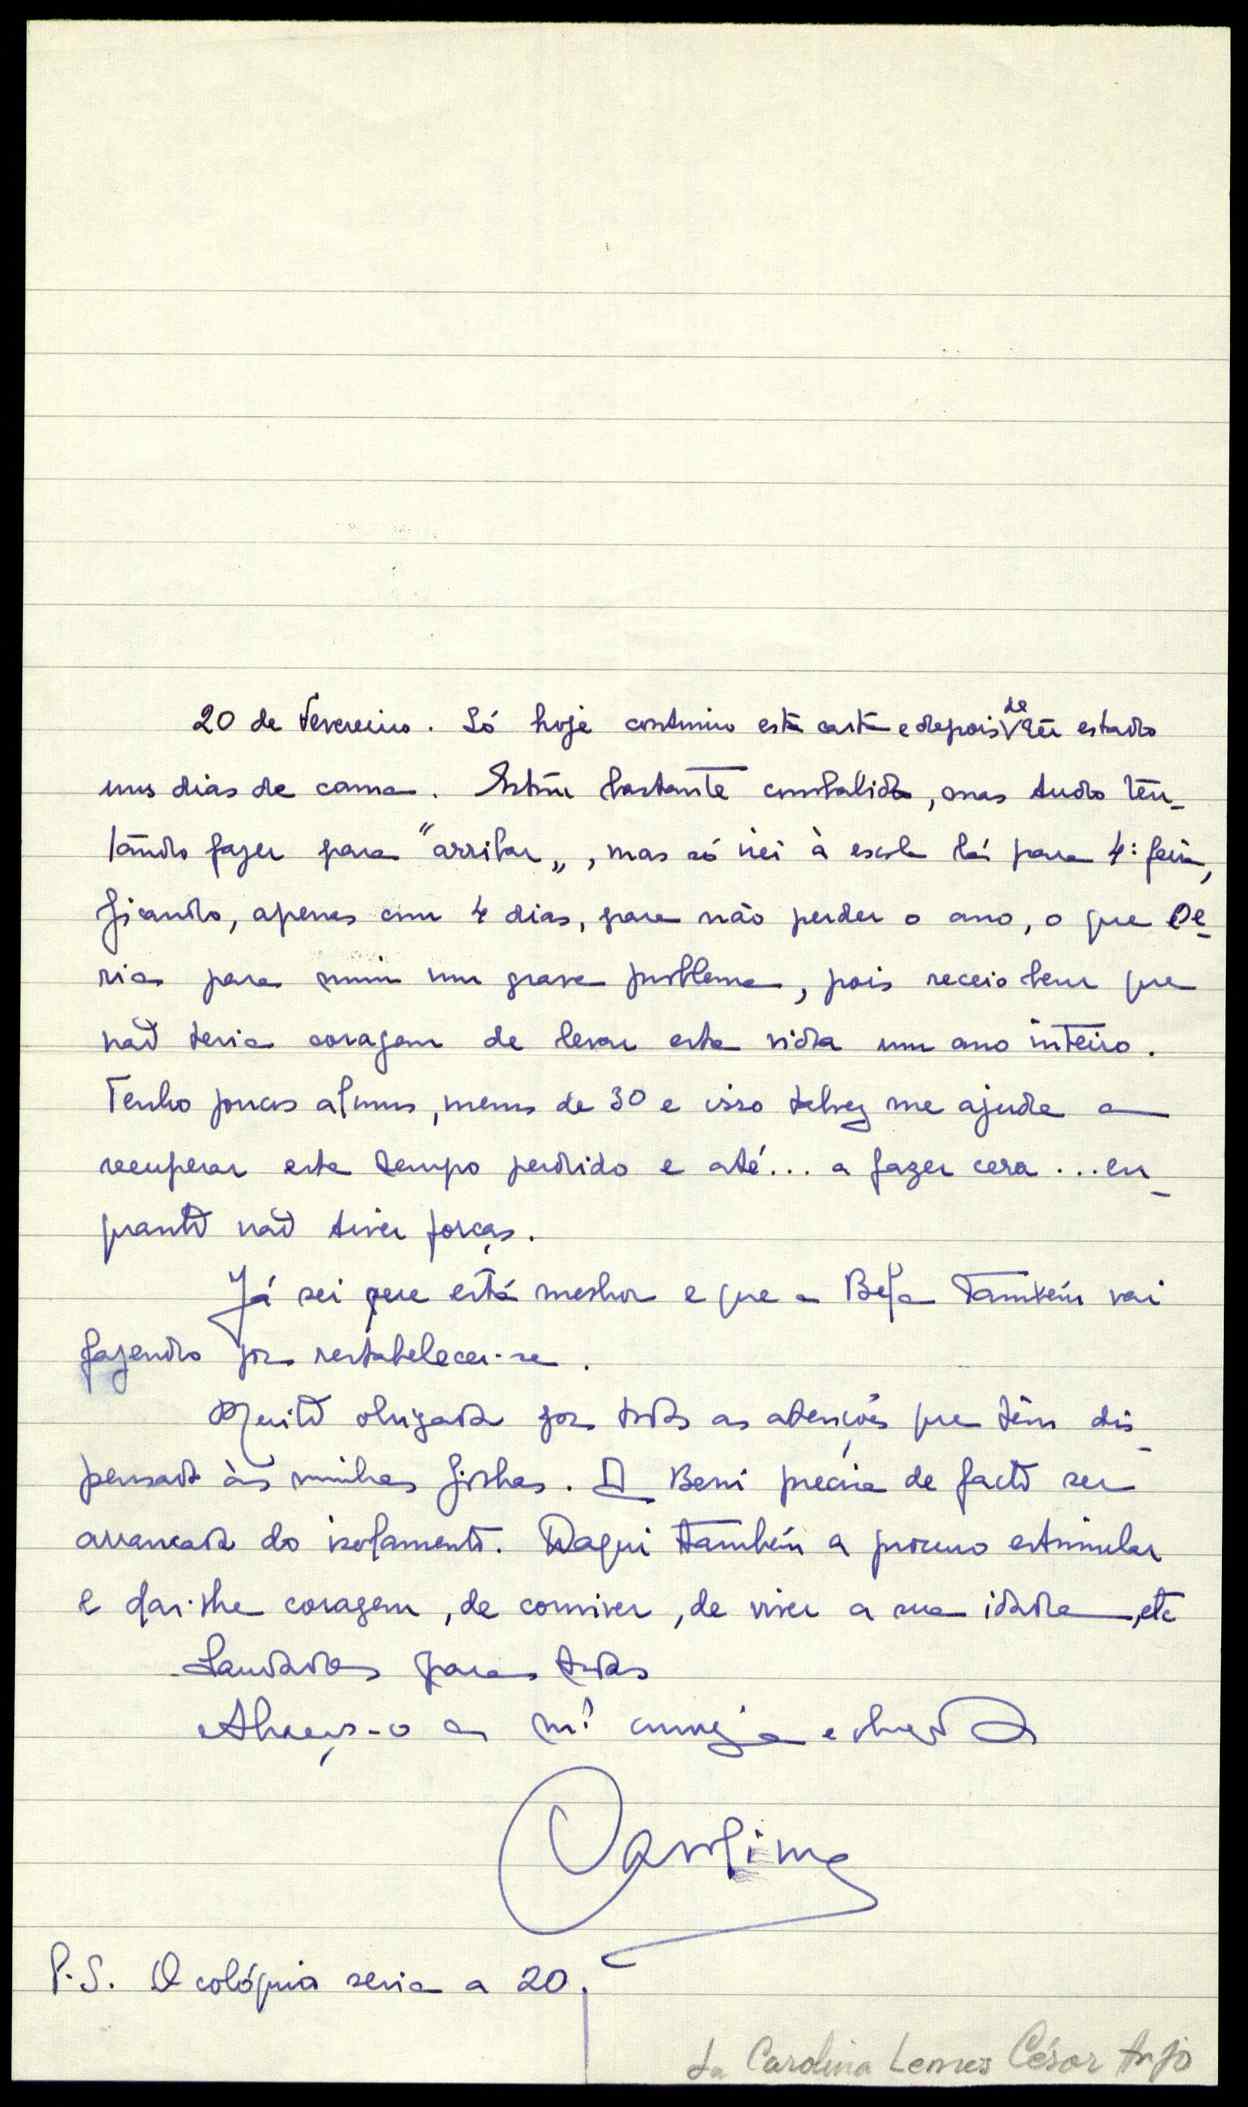 20 de Fevereiro. Só hoje continuo esta carta e depois de ter estado
uns dias de cama. Estou bastante combalida, mas tudo ten-
tando fazer para "arribar", mas só irei à escola lá para 4ª feira,
ficando, apenas com 4 dias, para não perder o ano, o que se-
ria para mim um grave problema, pois receio bem que
não teria coragem de levar esta vida um ano inteiro.
Tenho poucos alunos, menos de 30 e isso talvez me ajude a
recuperar este tempo perdido e até... a fazer cera... en-
quanto não tiver forças.
Já sei que está melhor e que a Bela também vai
fazendo por restabelecer-se.
Muito obrigada por todas as atenções que têm dis-
pensado às minhas filhas. A Beni precisa de facto ser
arrancada do isolamento. Daqui também a procuro estimular
e dar-lhe coragem, de conviver, de viver a sua idade, etc
Saudades para todos
Abraça-o a mt amiga e obrigada
Carolina
P.S. O colóquio seria a 20.
da Carolina Lemos César Anjo